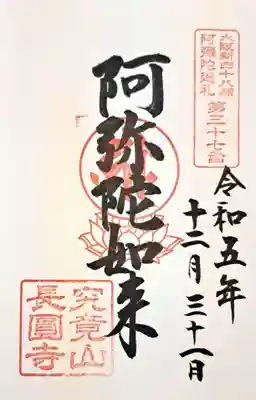 大阪新四十八願
阿彌陀巡礼
第三十七番
令和五年
十二月三十一日
阿弥陀如来
究竟山
長圓寺